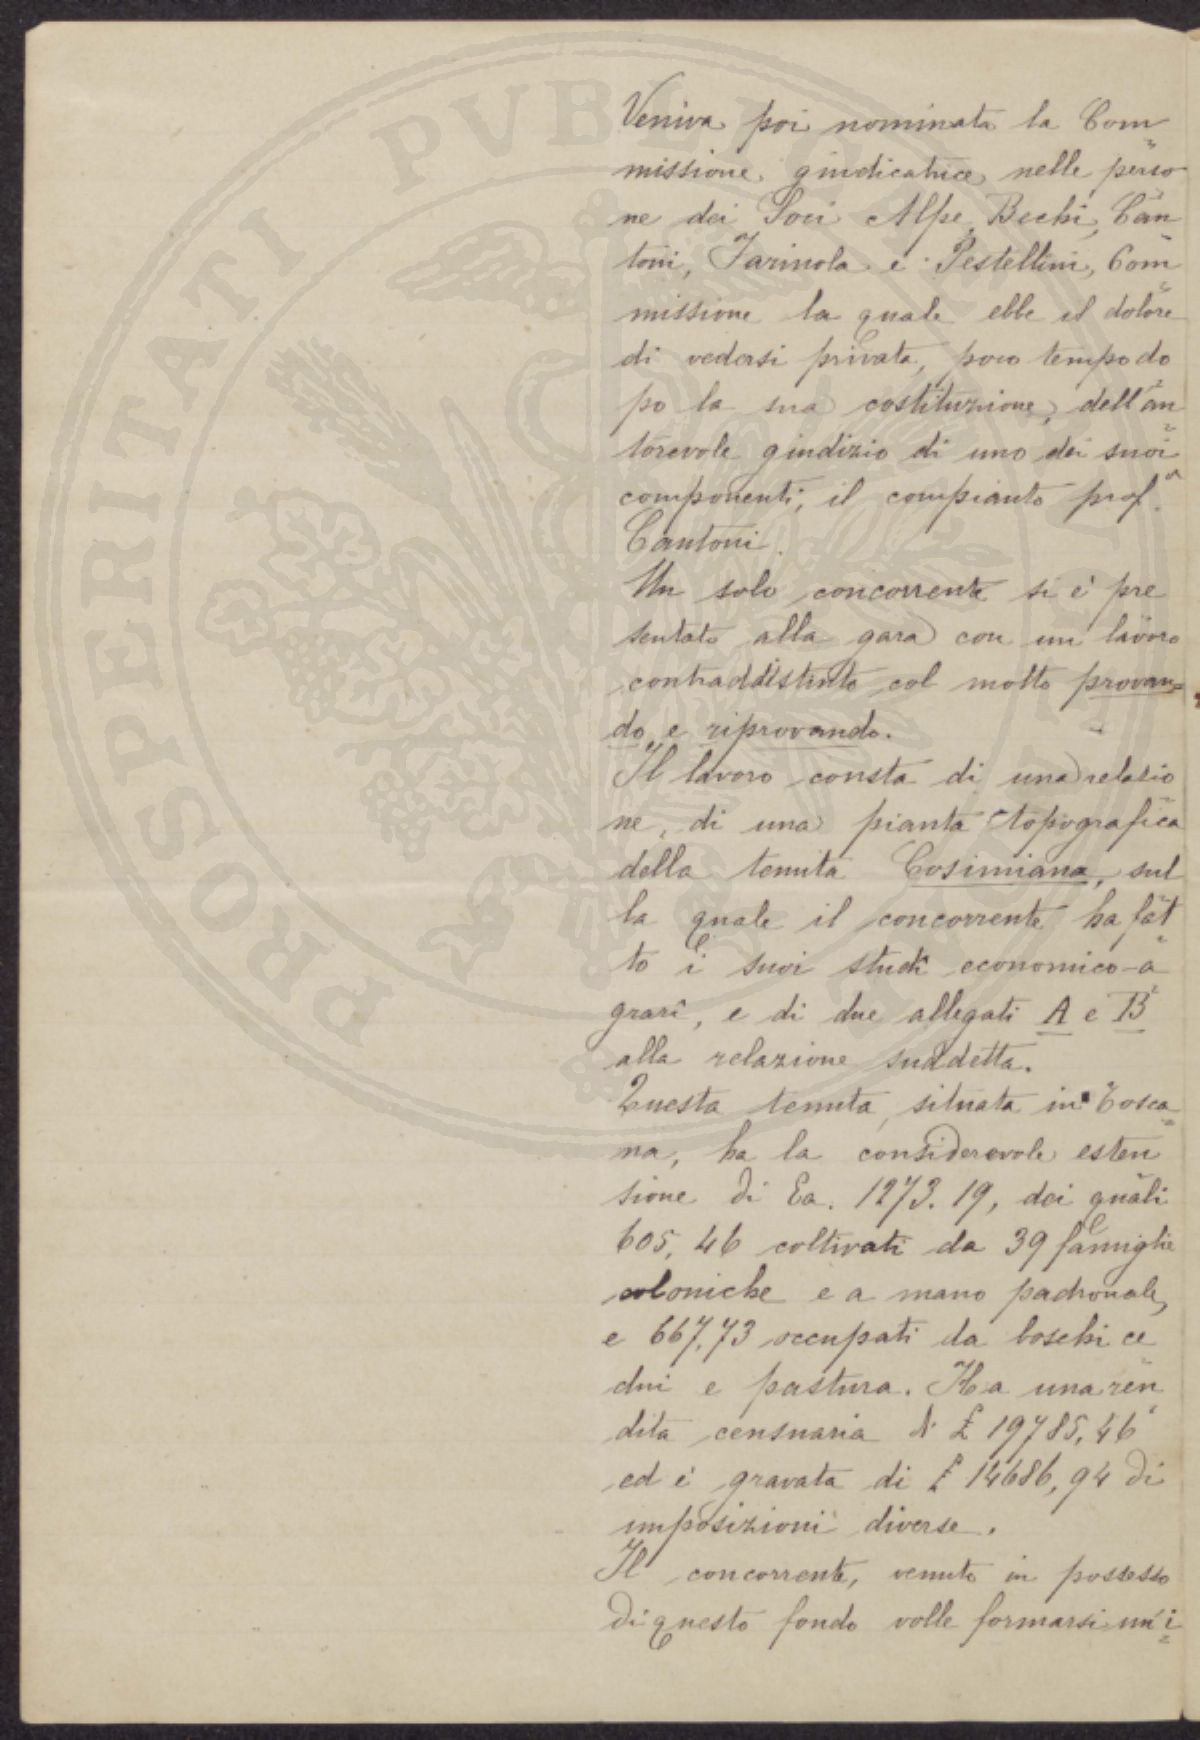 Veniva poi nominata la Com=
missione giudicatrice nelle perso=
ne dei Soci Alpe, Bechi, Can=
toni, Farinola e Pestellini, Com=
missione la quale ebbe il dolore
di vedersi privata, poco tempo do
po la sua costituzione, dell'au=
torevole giudizio di uno dei suoi
componenti, il compianto prof.
Cantoni.
Un solo concorrente si è pre
sentato alla gara con un lavoro
contraddistinto col motto provan=
do e riprovando.
Il lavoro consta di una relazio
ne, di una pianta topografica
della tenuta Cosimiana, sul
la quale il concorrente ha fat
to i suoi studî economico-a=
grarî, e di due allegati A e B
alla relazione suddetta.
Questa tenuta, situata in Tosca=
na, ha la considerevole esten=
sione di Ea. 1273.19, dei quali
605,46 coltivati da 39 famiglie
coloniche e a mano padronale,
e 667,73 occupati da boschi ce
dui e pastura. Ha una ren=
dita censuaria di £ 19785,46
ed è gravata di £ 14686,94 di
imposizioni diverse.
Il concorrente, venuto in possesso
di questo fondo volle formarsi un'i=
PROSPERITATI PVBLICAE